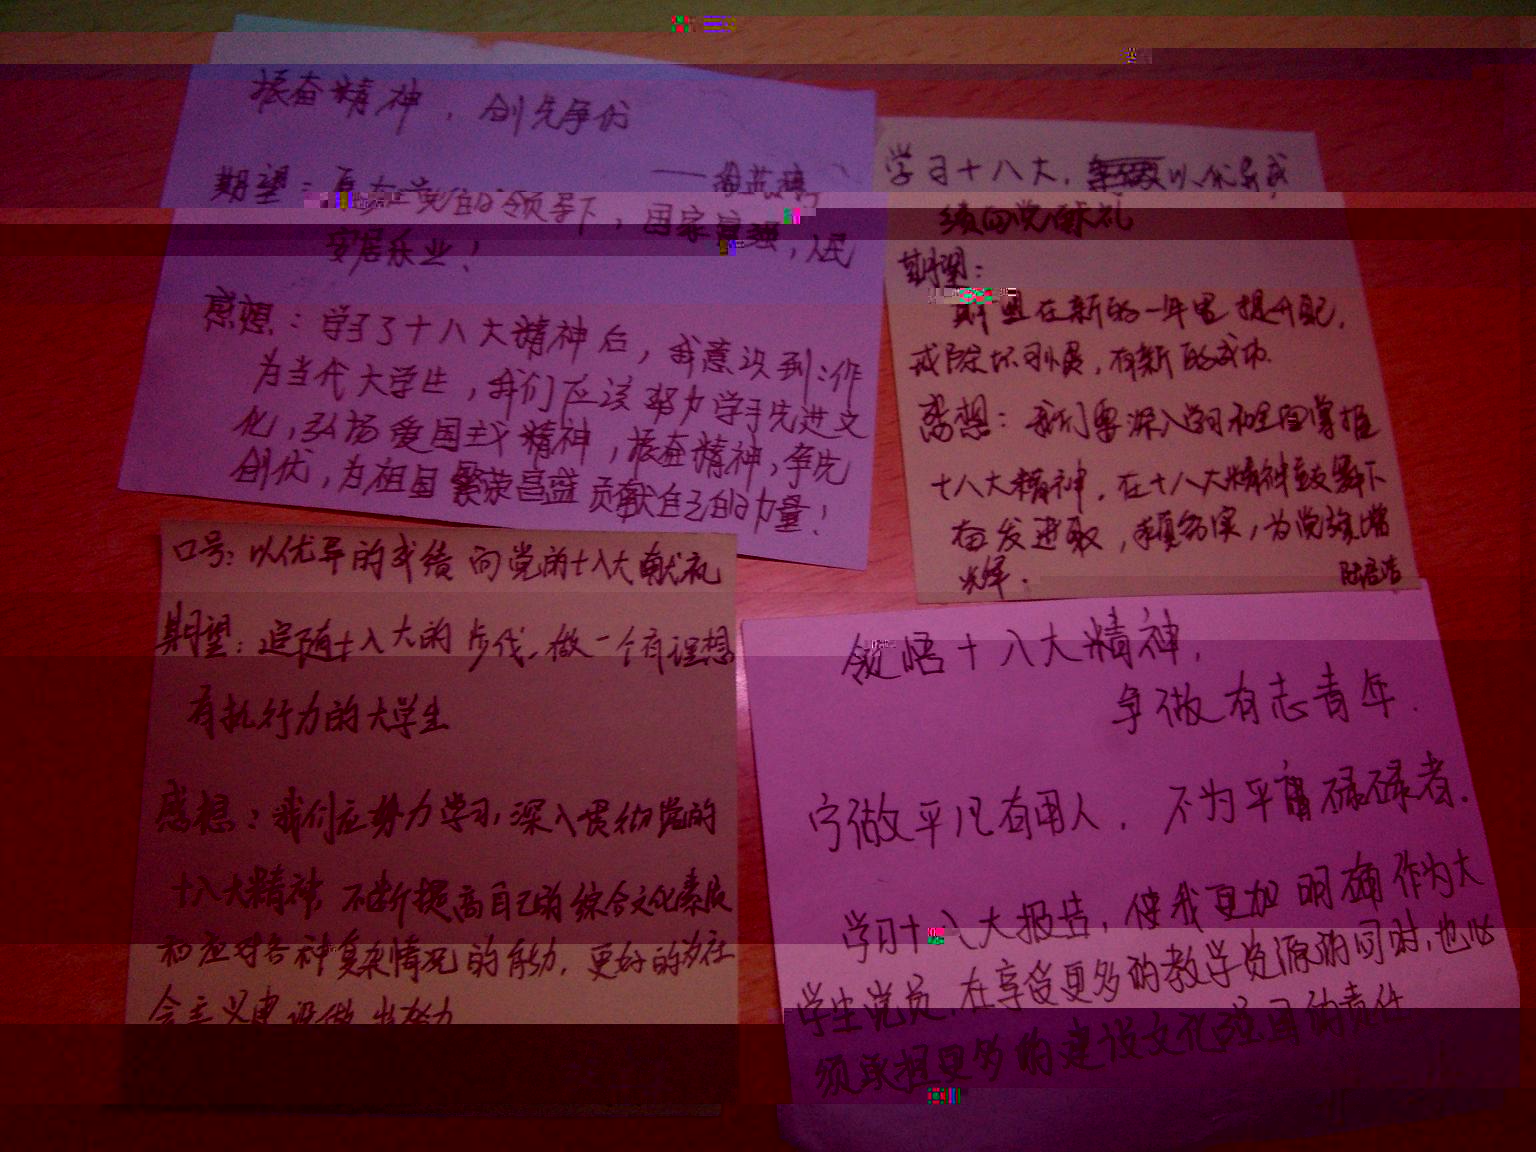 振奋精神，创先争优
期望：在党的领导下，国家富强，人民
安居乐业！
感想：学习了十八大精神后，我意识到：作
为当代大学生，我们应该努力学习先进文
化，弘扬爱国主义精神，振奋精神，争先
创优，为祖国繁荣昌盛贡献自己的力量！
学习十八大，以优异成
绩向党献礼
期望：
期望在新的一年里提升自己，
戒除坏习惯，有新的成功.
感想：我们要深入学习和全面掌握
十八大精神，在十八大精神鼓舞下
奋发进取，求真务实，为党旗增
光辉.
陆启浩
口号：以优异的成绩向党的十八大献礼
期望：追随十八大的步伐，做一个有理想
有执行力的大学生
感想：我们应努力学习，深入贯彻党的
十八大精神，不断提高自己的综合文化素质
和应对各种复杂情况的能力，更好的为社
会主义建设做出努力
领悟十八大精神，
争做有志青年.
宁做平凡有用人，不为平庸碌碌者.
学习十八大报告，使我更加明确作为大
学生党员，在享受更多的教学资源的同时，也必
须承担更多的建设文化强国的责任